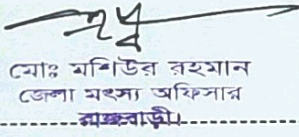 মোঃ মশিউর রহমান
জেলা মৎস্য অফিসার
রাজবাড়ী।